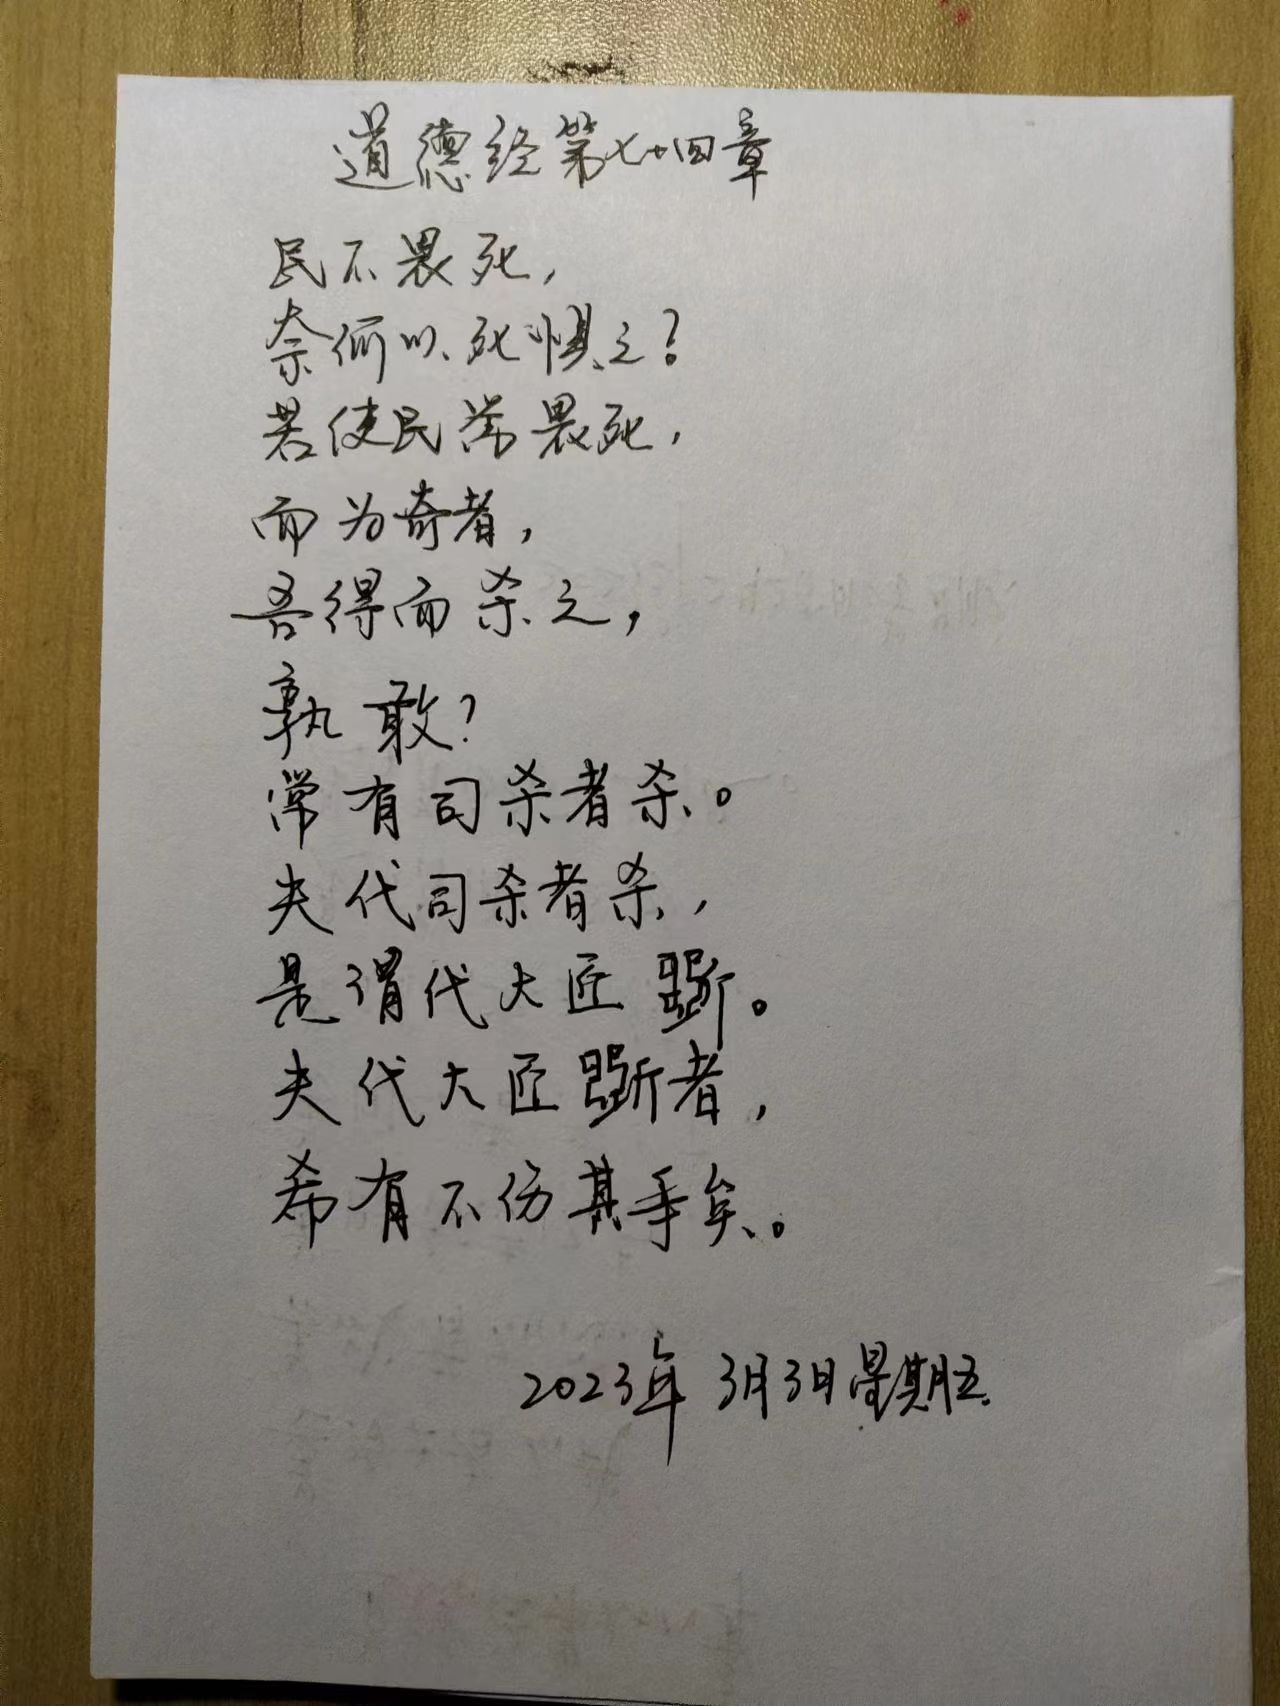 道德经第七十四章
民不畏死，
奈何以死惧之？
若使民常畏死，
而为奇者，
吾得而杀之，
孰敢？
常有司杀者杀。
夫代司杀者杀，
是谓代大匠斲。
夫代大匠斲者，
希有不伤其手矣。
2023年3月3日星期五